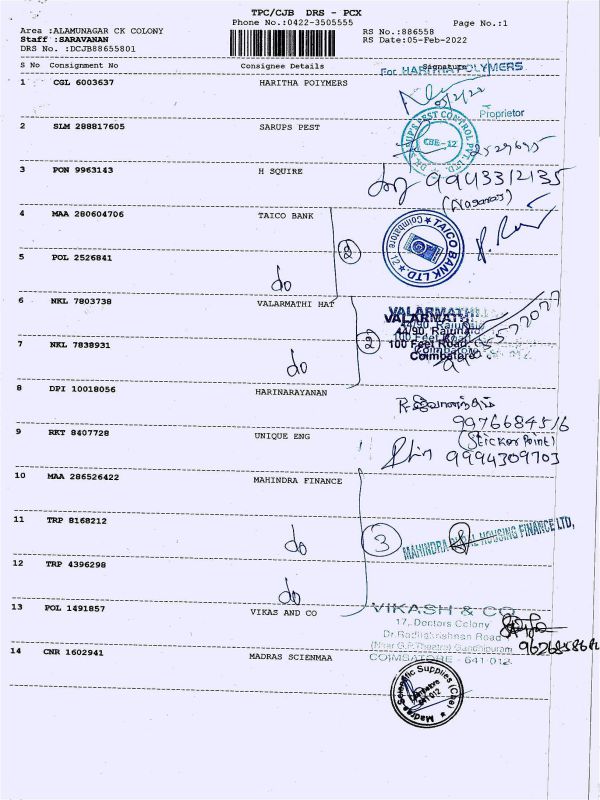 TPC/CJB DRS - PCX
Phone No.:0422-3505555 Page No.:1
Area :ALAMUNAGAR CK COLONY RS No.:886558
Staff :SARAVANAN RS Date:05-Feb-2022
DRS No. :DCJB88655801
S No Consignment No Consignee Details Signature
For HARITHA POLYMERS
1 CGL 6003637 HARITHA POIYMERS
Proprietor
2 SLM 288817605 SARUPS PEST
CBE-12
3 PON 9963143 H SQUIRE 9943312135
4 MAA 280604706 TAICO BANK
TAICO BANK LTD. Coimbatore 12
2
5 POL 2526841 do
6 NKL 7803738 VALARMATHI HAT
VALARMATHI
44/90, Rajuna
100 Feet Road
Coimbatore
2
7 NKL 7838931 do
8 DPI 10018056 HARINARAYANAN
9976684516
9 RKT 8407728 UNIQUE ENG
(Sticker Point)
9994309703
10 MAA 286526422 MAHINDRA FINANCE
11 TRP 8168212 do 3
MAHINDRA RURAL HOUSING FINANCE LTD,
12 TRP 4396298 do
13 POL 1491857 VIKAS AND CO
VIKASH & CO
17, Doctors Colony
Dr.Radhakrishnan Road
(Near G.P.Theatre) Gandhipuram
COIMBATORE - 641 012.
14 CNR 1602941 MADRAS SCIENMAA
Madras Scientific Supplies (Cbe)
Coimbatore
641 012